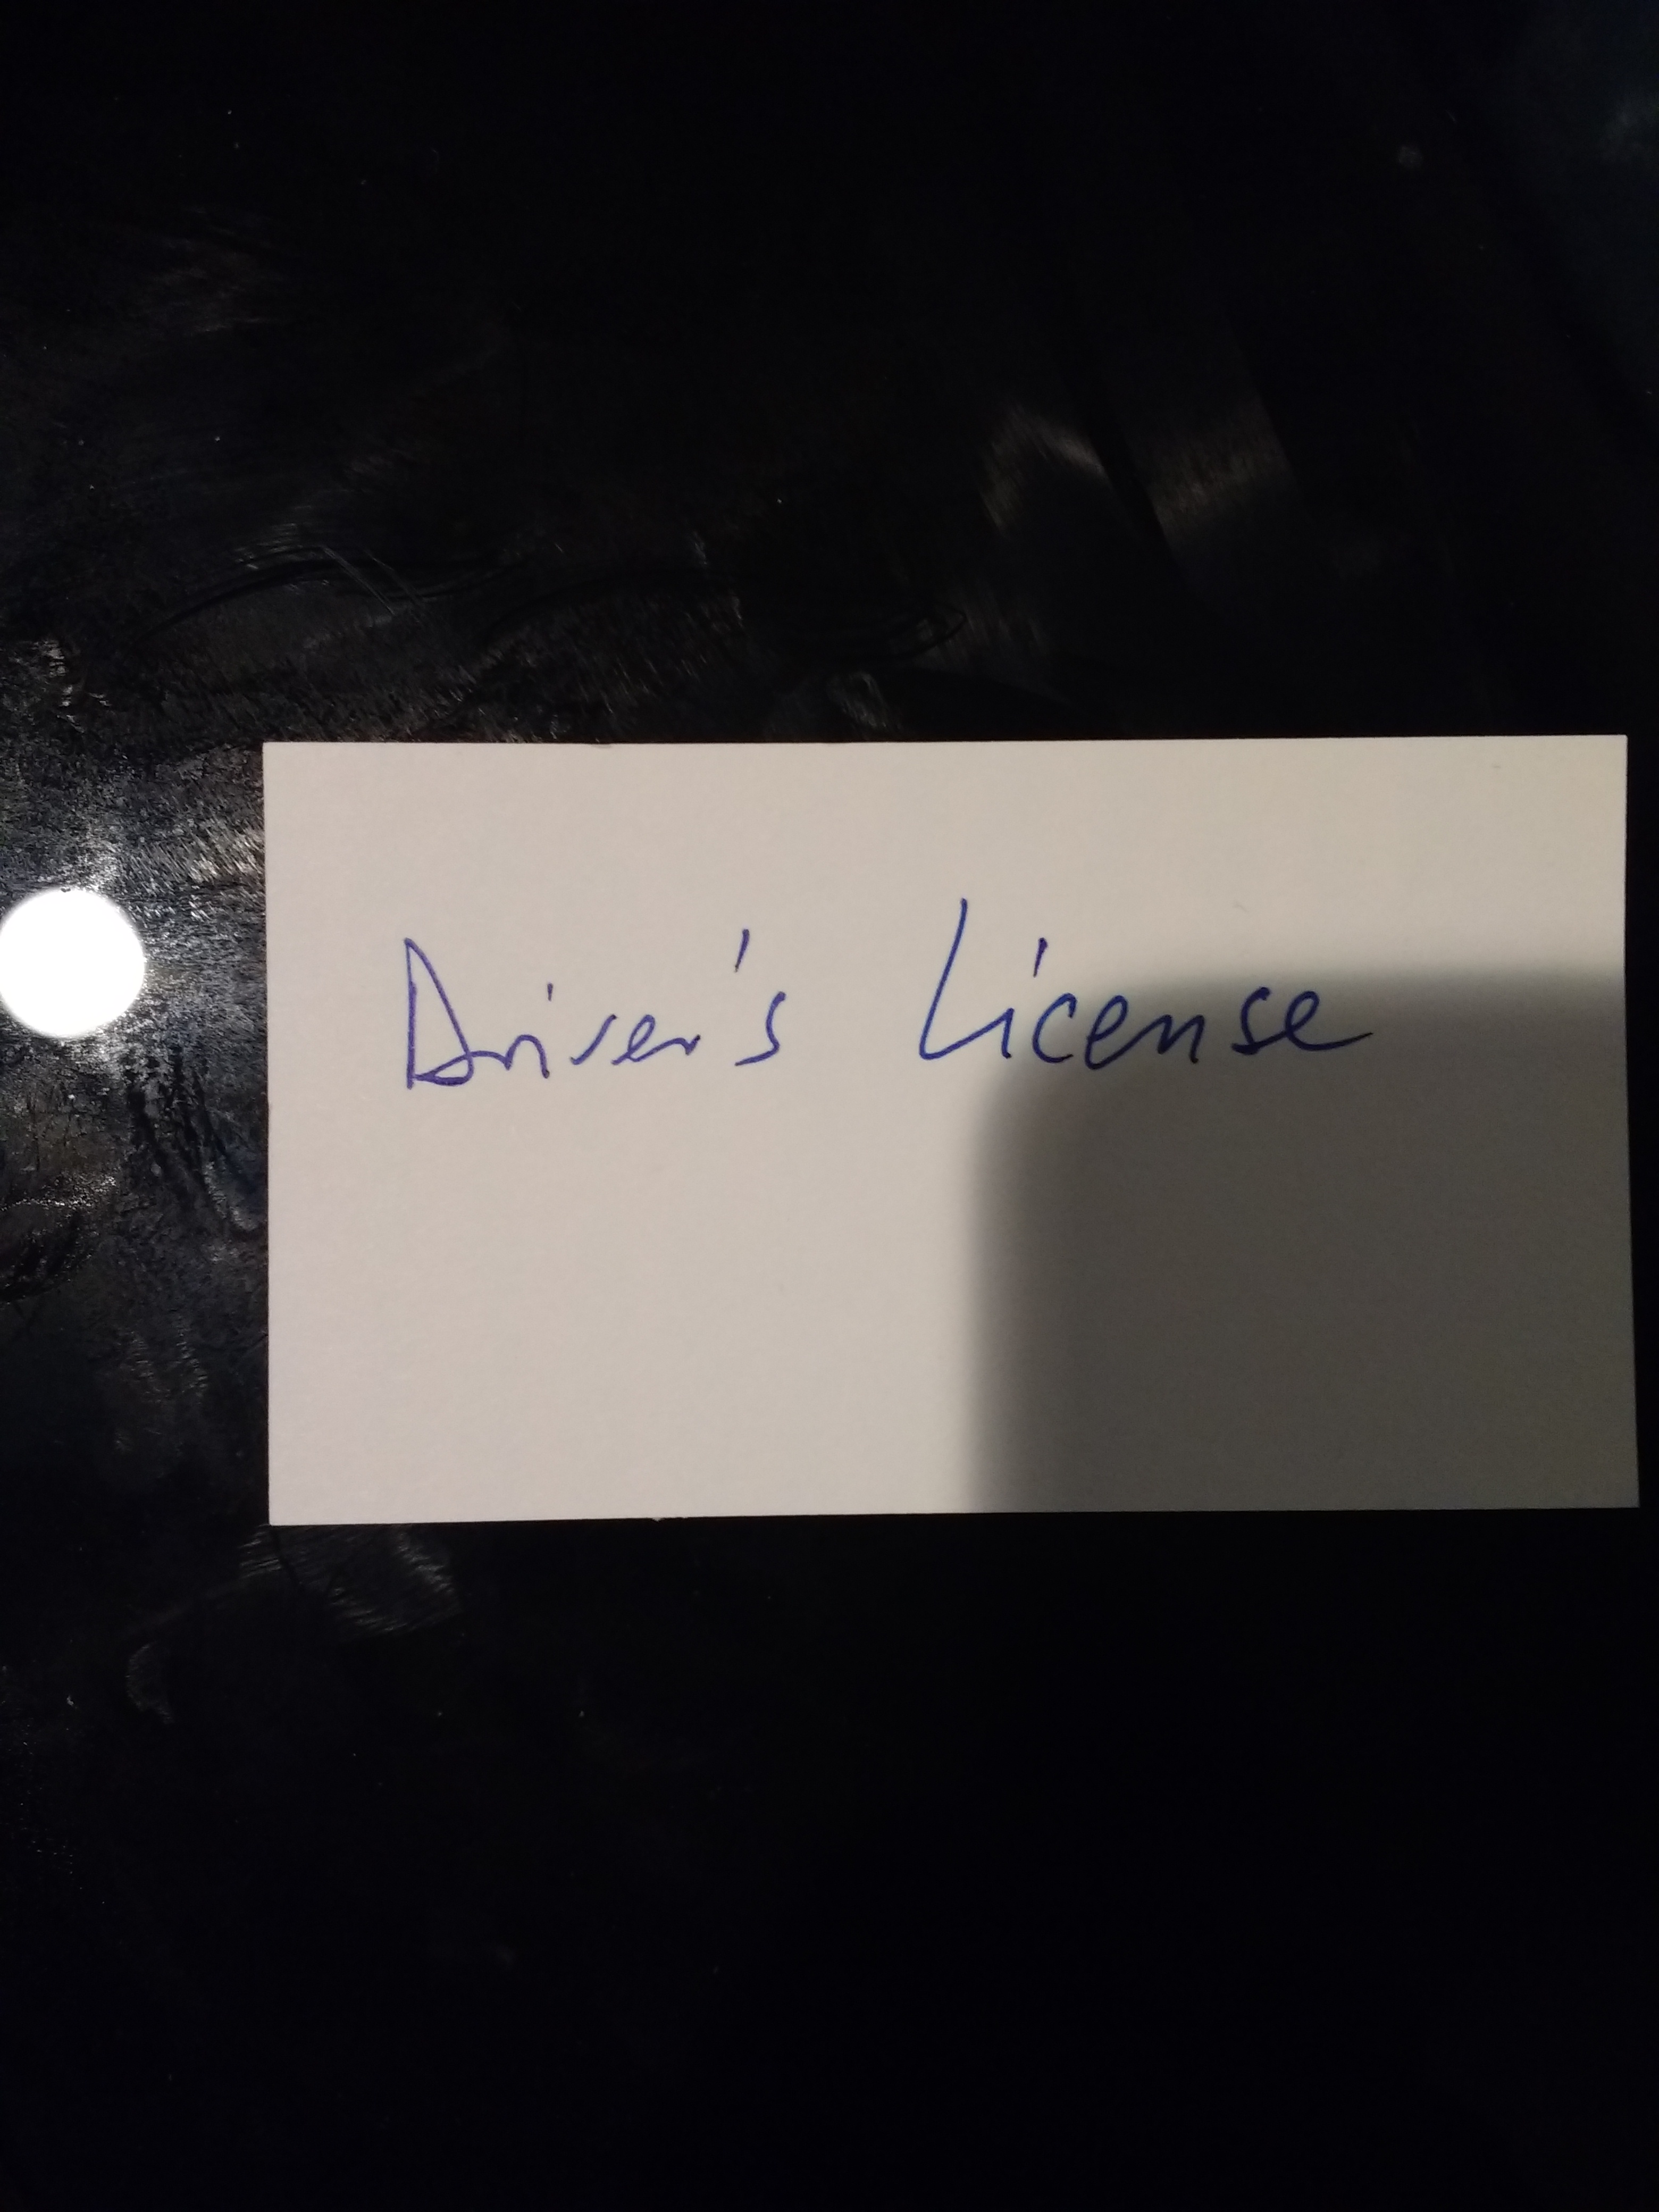 Driver's License